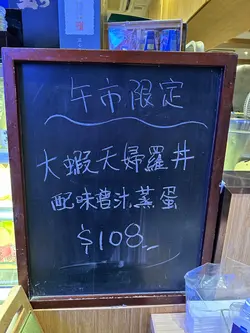 午市限定
大蝦天婦羅丼
配味曽汁蒸蛋
$108.-